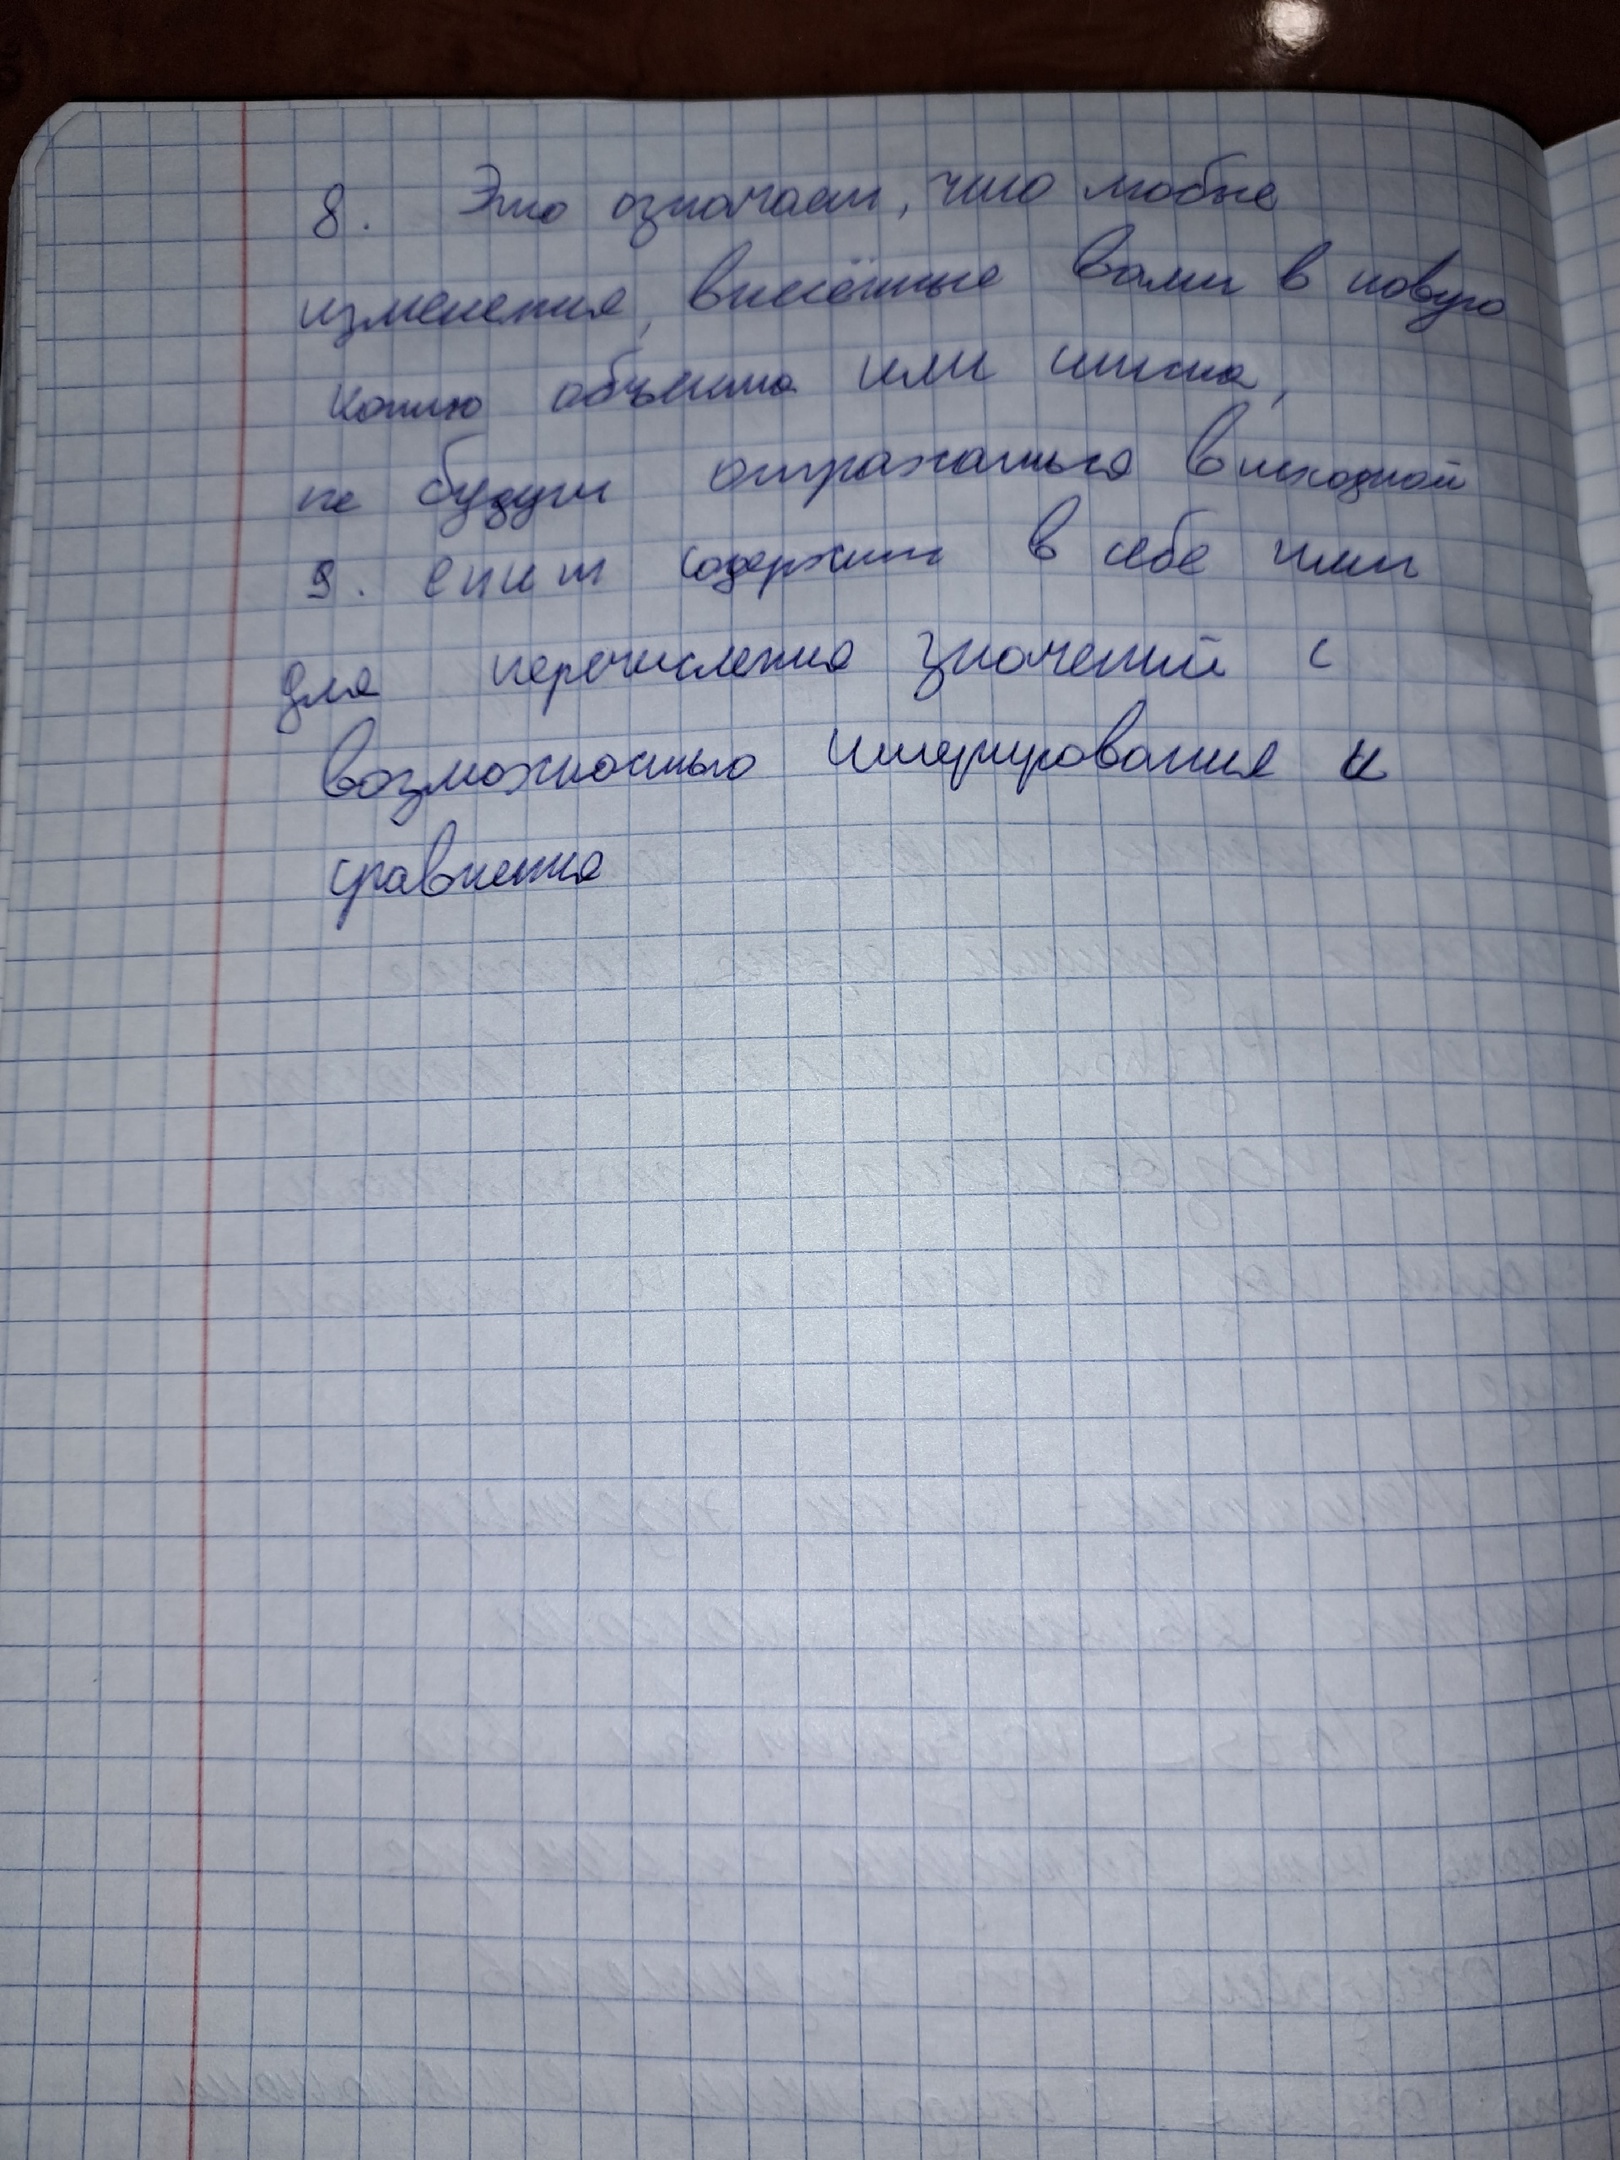 8. Это означает, что любые
изменения, внесённые вами в новую
копию объекта или списка,
не будут отражаться в исходной
9. enum содержит в себе типы
для перечисления значений с
возможностью итерирования и
сравнения